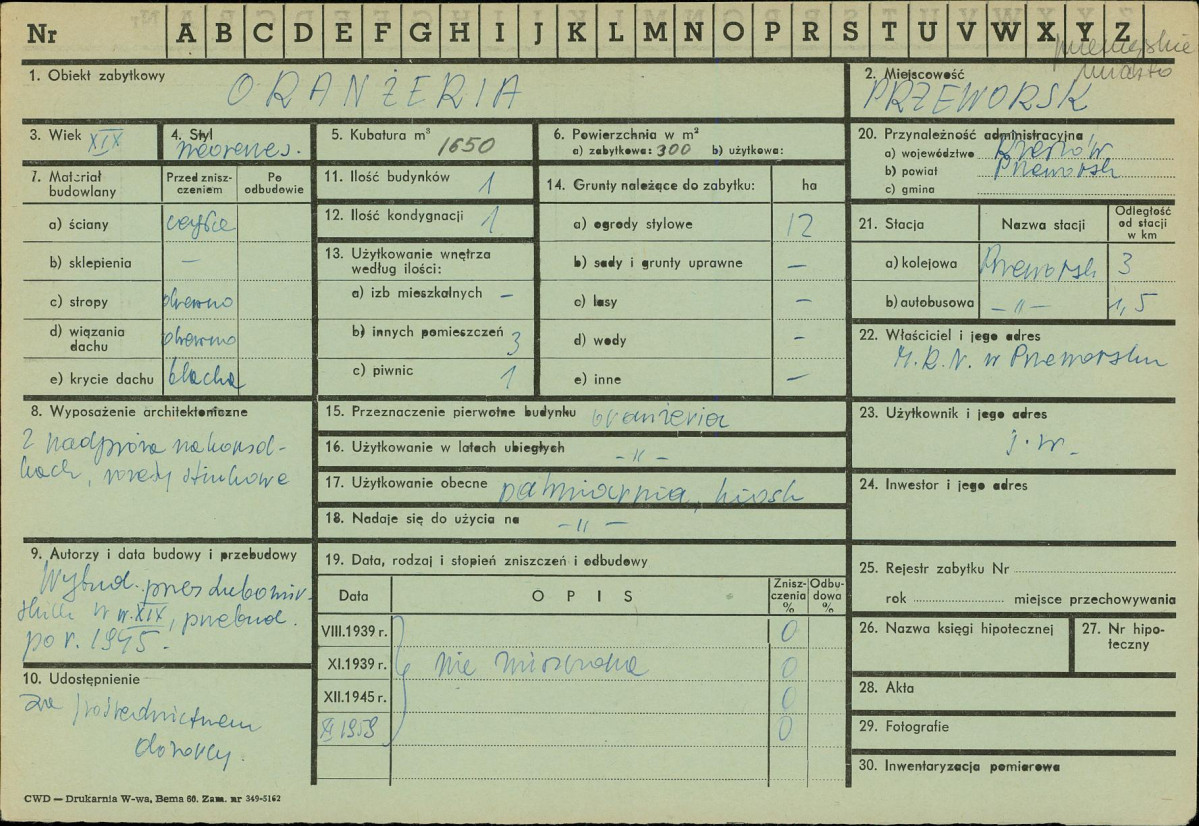 Nr A B C D E F G H I J K L M N O P R S T U V W X Y Z
przemyskie
miasto
1. Obiekt zabytkowy
ORANŻERIA
2. Miejscowość
PRZEWORSK
3. Wiek XIX
4. Styl
neorenes.
5. Kubatura m³
1650
6. Powierzchnia w m²
a) zabytkowa: 300 b) użytkowa:
20. Przynależność administracyjna
a) województwo Rzeszów
b) powiat Przeworsk
c) gmina
7. Materiał budowlany
Przed zniszczeniem
Po odbudowie
a) ściany cegła
b) sklepienia —
c) stropy drewno
d) wiązania dachu drewno
e) krycie dachu blacha
11. Ilość budynków 1
12. Ilość kondygnacji 1
13. Użytkowanie wnętrza
według ilości:
a) izb mieszkalnych –
b) innych pomieszczeń 3
c) piwnic 1
14. Grunty należące do zabytku: ha
a) ogrody stylowe 12
b) sady i grunty uprawne –
c) lasy –
d) wody –
e) inne –
21. Stacja Nazwa stacji Odległość od stacji w km
a) kolejowa Przeworsk 3
b) autobusowa — " — 1,5
22. Właściciel i jego adres
M.R.N. w Przeworsku
8. Wyposażenie architektoniczne
2 nadproża na konsol-
kach,
15. Przeznaczenie pierwotne budynku oranżeria
16. Użytkowanie w latach ubiegłych
- " -
17. Użytkowanie obecne palmiarnia, kiosk
18. Nadaje się do użycia na - " -
23. Użytkownik i jego adres
j.w.
24. Inwestor i jego adres
9. Autorzy i data budowy i przebudowy
Wybud. przez Lubomir-
skich w w. XIX, przebud.
po r. 1945.
10. Udostępnienie
za pośrednictwem
dozorcy.
19. Data, rodzaj i stopień zniszczeń i odbudowy
Data OPIS Zniszczenia % Odbudowa %
VIII.1939 r. 0
XI.1939 r. nie niszczona 0
XII.1945 r. 0
XI 1959 0
25. Rejestr zabytku Nr
rok miejsce przechowywania
26. Nazwa księgi hipotecznej
27. Nr hipoteczny
28. Akta
29. Fotografie
30. Inwentaryzacja pomiarowa
CWD — Drukarnia W-wa, Bema 60. Zam. nr 349-5162